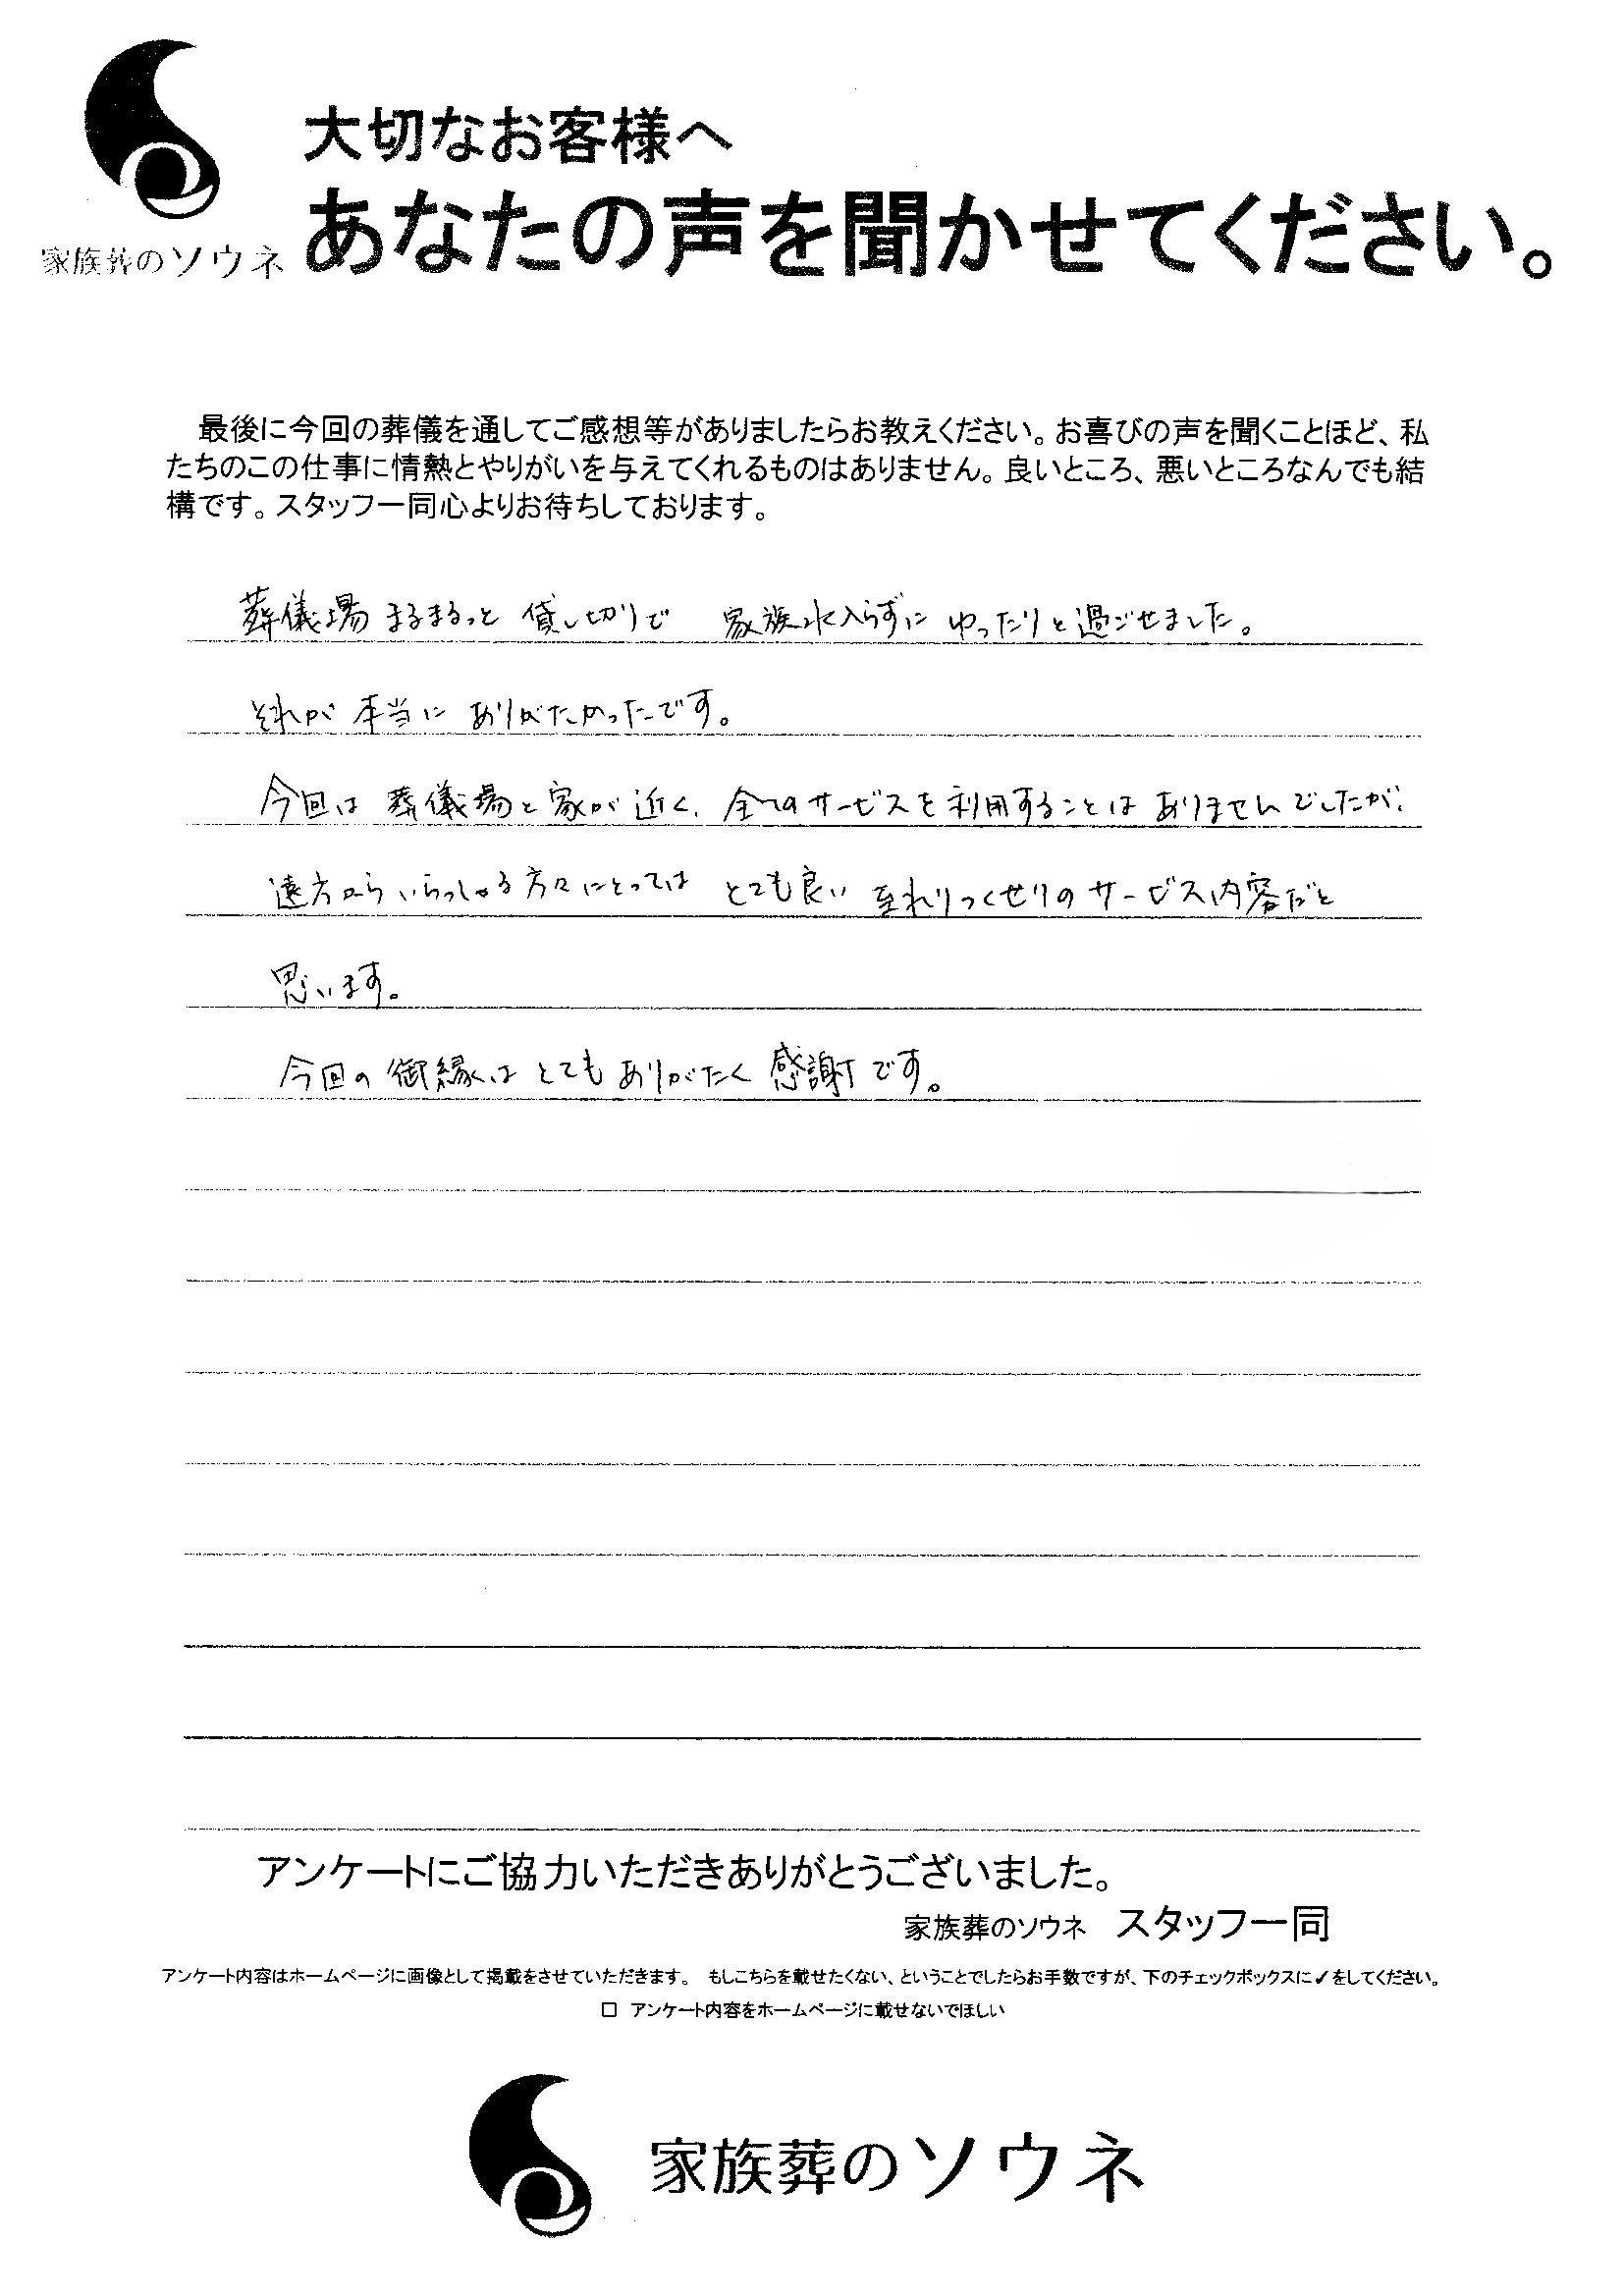 大切なお客様へ
家族葬のソウネ
あなたの声を聞かせてください。
最後に今回の葬儀を通してご感想等がありましたらお教えください。お喜びの声を聞くことほど、私
たちのこの仕事に情熱とやりがいを与えてくれるものはありません。良いところ、悪いところなんでも結
構です。スタッフ一同心よりお待ちしております。
葬儀場まるまるっと貸し切りで 家族水入らずに ゆったりと過ごせました。
それが本当にありがたかったです。
今回は葬儀場と家が近く、全てのサービスを利用することはありませんでしたが、
遠方からいらっしゃる方々にとっては とても良い 至れりつくせりのサービス内容だと
思います。
今回の御縁はとてもありがたく感謝です。
アンケートにご協力いただきありがとうございました。
家族葬のソウネ スタッフ一同
アンケート内容はホームページに画像として掲載をさせていただきます。 もしこちらを載せたくない、ということでしたらお手数ですが、下のチェックボックスに✓をしてください。
□ アンケート内容をホームページに載せないでほしい
家族葬のソウネ